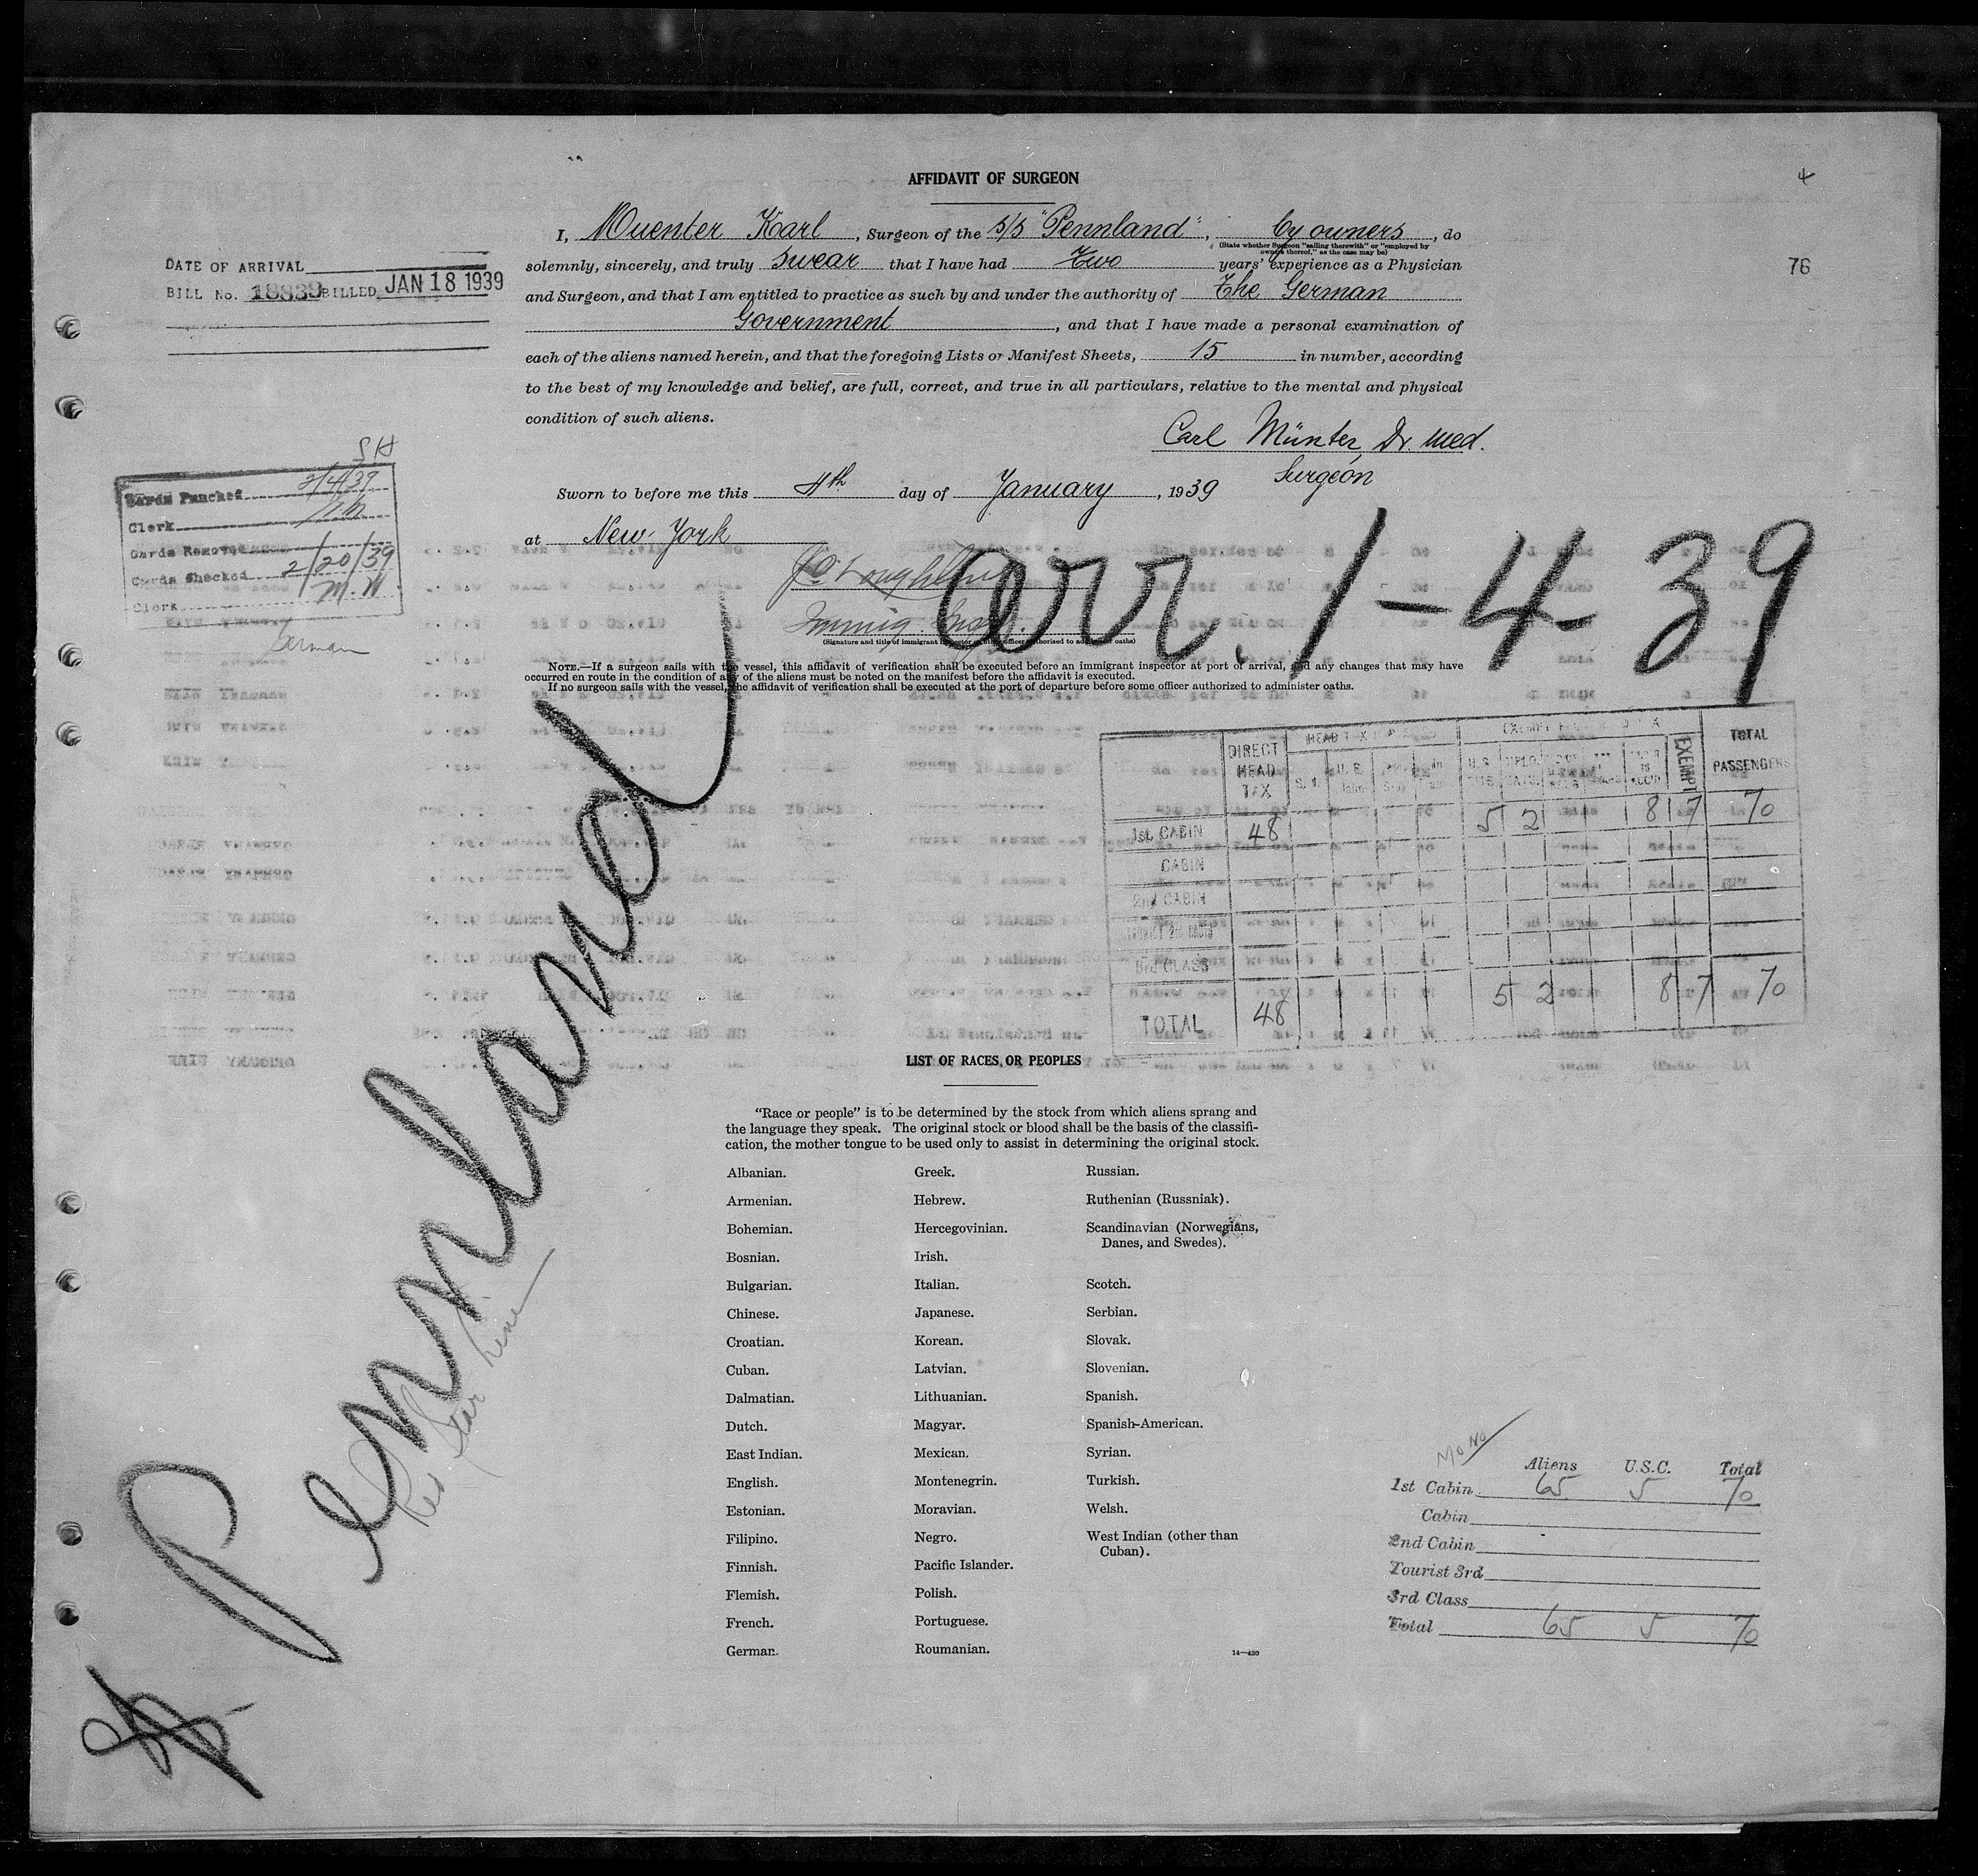 AFFIDAVIT OF SURGEON
4
I, Muenter Karl, Surgeon of the S/S "Pennland", by owners, do
(State whether Surgeon "sailing therewith" or "employed by
owners thereof," as the case may be)
solemnly, sincerely, and truly swear that I have had Two years' experience as a Physician
and Surgeon, and that I am entitled to practice as such by and under the authority of The German
Government, and that I have made a personal examination of
each of the aliens named herein, and that the foregoing Lists or Manifest Sheets, 15 in number, according
to the best of my knowledge and belief, are full, correct, and true in all particulars, relative to the mental and physical
condition of such aliens.
76
DATE OF ARRIVAL
BILL No. 18839 BILLED JAN 18 1939
Carl Münter Dr. med.
Surgeon
Sworn to before me this 4th day of January, 1939
at New York
Immig. Insp.
(Signature and title of immigrant inspector or other officer authorized to administer oaths)
arr. 1-4-39
SH
Cards Punched 2/4/39
Clerk
Cards Removed
Cards Checked 2/20/39
Clerk M.W.
NOTE.—If a surgeon sails with the vessel, this affidavit of verification shall be executed before an immigrant inspector at port of arrival, and any changes that may have
occurred en route in the condition of any of the aliens must be noted on the manifest before the affidavit is executed.
If no surgeon sails with the vessel, the affidavit of verification shall be executed at the port of departure before some officer authorized to administer oaths.
DIRECT HEAD TAX
EXEMPT
TOTAL PASSENGERS
1st CABIN 48 5 2 8 7 70
CABIN
2nd CABIN
3rd CLASS
TOTAL 48 5 2 8 7 70
Pennland
Red Star Line
LIST OF RACES OR PEOPLES
"Race or people" is to be determined by the stock from which aliens sprang and
the language they speak. The original stock or blood shall be the basis of the classifi-
cation, the mother tongue to be used only to assist in determining the original stock.
Albanian.
Armenian.
Bohemian.
Bosnian.
Bulgarian.
Chinese.
Croatian.
Cuban.
Dalmatian.
Dutch.
East Indian.
English.
Estonian.
Filipino.
Finnish.
Flemish.
French.
German.
Greek.
Hebrew.
Hercegovinian.
Irish.
Italian.
Japanese.
Korean.
Latvian.
Lithuanian.
Magyar.
Mexican.
Montenegrin.
Moravian.
Negro.
Pacific Islander.
Polish.
Portuguese.
Roumanian.
Russian.
Ruthenian (Russniak).
Scandinavian (Norwegians,
Danes, and Swedes).
Scotch.
Serbian.
Slovak.
Slovenian.
Spanish.
Spanish-American.
Syrian.
Turkish.
Welsh.
West Indian (other than
Cuban).
14—430
Aliens U.S.C. Total
1st Cabin 65 5 70
Cabin
2nd Cabin
Tourist 3rd
3rd Class
Total 65 5 70